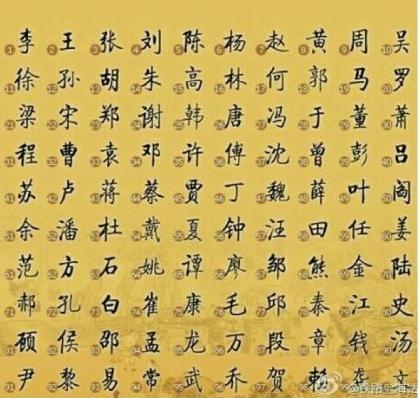 1李 2王 3张 4刘 5陈 6杨 7赵 8黄 9周 10吴
11徐 12孙 13胡 14朱 15高 16林 17何 18郭 19马 20罗
21梁 22宋 23郑 24谢 25韩 26唐 27冯 28于 29董 30萧
31程 32曹 33袁 34邓 35许 36傅 37沈 38曾 39彭 40吕
41苏 42卢 43蒋 44蔡 45贾 46丁 47魏 48薛 49叶 50阎
51余 52潘 53杜 54戴 55夏 56钟 57汪 58田 59任 60姜
61范 62方 63石 64姚 65谭 66廖 67邹 68熊 69金 70陆
71郝 72孔 73白 74崔 75康 76毛 77邱 78秦 79江 80史
81顾 82侯 83邵 84孟 85龙 86万 87段 88章 89钱 90汤
91尹 92黎 93易 94常 95武 96乔 97贺 98赖 99龚 文